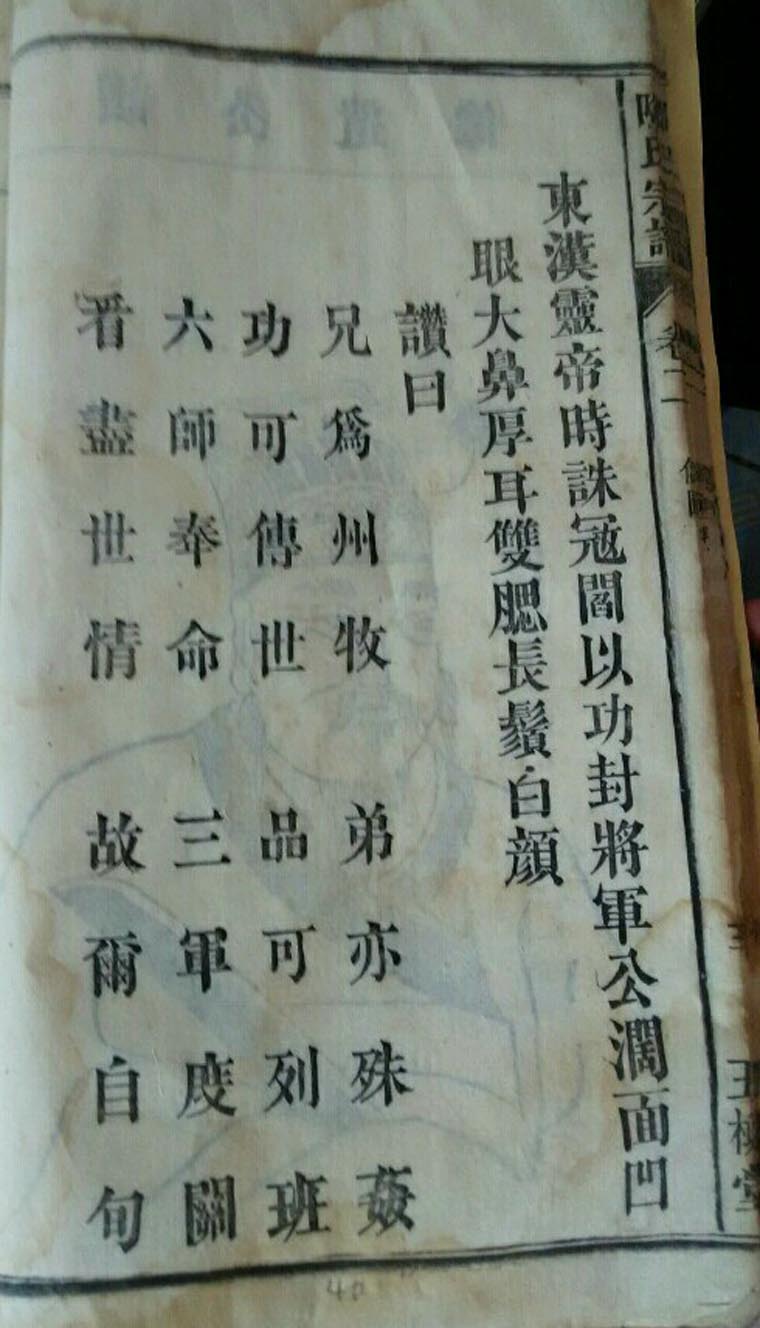 東漢靈帝時誅冦閻以功封將軍公濶面凹
眼大鼻厚耳雙腮長鬚白顔
讚曰
兄爲州牧 弟亦殊姦
功可傳世 品可列班
六師奉命 三軍度關
看盡世情 故爾自旬
氏宗譜
卷二